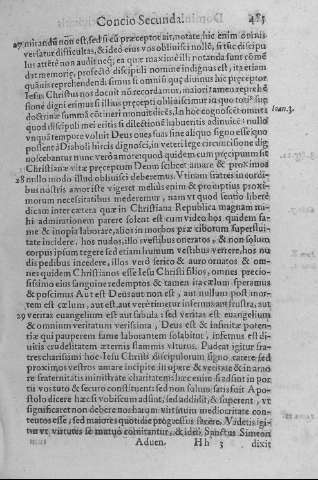 Concio Secunda. 485
27 mirandũ non est, sed si eũ præceptor ait, notate, hic enim omnis
versatur difficultas, & ideò eius vos oblivisci nollè, si
lus attentè non audit nec
dat memoriæ, profectò discipuli nomine indignus est, ita etiam
quàuis reprehendendi sumus si omnis quæ diuinus hic præceptor
Iesus Christus nos docuit nõ recordamur, maiori tamen reprehẽ
sione digni erimus si illius præcepti obliuiscimur in quo totã suę
doctrinæ summã cõtineri monuit dicẽs, In hoc cognoscẽt omnes Ioan. 13.
quod discipuli mei estis si dilectionẽ habueritis adinuicẽ: nullo
vnquã tempore voluit Deus oues suas sine aliquo signo esse quo
possent à Diaboli hircis dignosci, in veteri lege circuncisione dig
noscebantur nunc verò amore quod quidem cum præcipuum sit
Christianæ vitæ præceptum Deum scilicet amare & proximos
28 nullo modo illud obliuisci deberemus. Vtinam fratres in cordi-
bus nostris amor iste vigeret melius enim & promptius proxi-
morum necessitatibus mederemur, nam vt quod sentio liberè
dicam inter cætera quæ in Christiana Republica magnam mi-
hi admirationem parere solent est cum video hos quidem fa-
me & inopia laborare, alios in morbos præ ciborum superflui-
tate incidere, hos nudos, illo vestibus oneratos, & non solum
corpus ipsum tegere sed etiam humum vestibus vertere, hos nu
dis pedibus incedere, illos verò serico & auro ornatos & om-
nes quidem Christianos esse Iesu Christi filios, omnes precio-
sissimo eius sanguine redemptos & tamen ita cælum speramus
& poscimus Aut est Deus aut non est, aut nullum post mor-
tem est cælum, aut est, aut veré timetur infernus aut frustra, aut
29 veritas euangelium est aut fabula: sed veritas est euangelium
& omnium veritatum verissima, Deus est & infinitæ poten-
tiæ qui pauperem fame laborantem solabitur, infernus est di-
uitis crudelitatem æternis flammis vlturus. Pudeat igitur fra-
tres charissimi hoc Iesu Christi discipulorum signo carere sed
proximos vestros amare incipite in opere & veritate & in amo
re fraternitatis ministrate charitatem: hæc enim si adsint in por-
tu vos tuto & securo constituent: sed non solum satis fuit Apo-
stolo dicere hæc si vobiscum adsint, sed addidit, & superent, vt
significaret non debere nos harum virtutum mediocritate con-
tentos esse, sed maiores quotidie progressus facere. Videtis igi-
tur vt virtutes se mutuo comitantur, & ideò Sanctus Simeon
Aduen. Hh 3 dixit